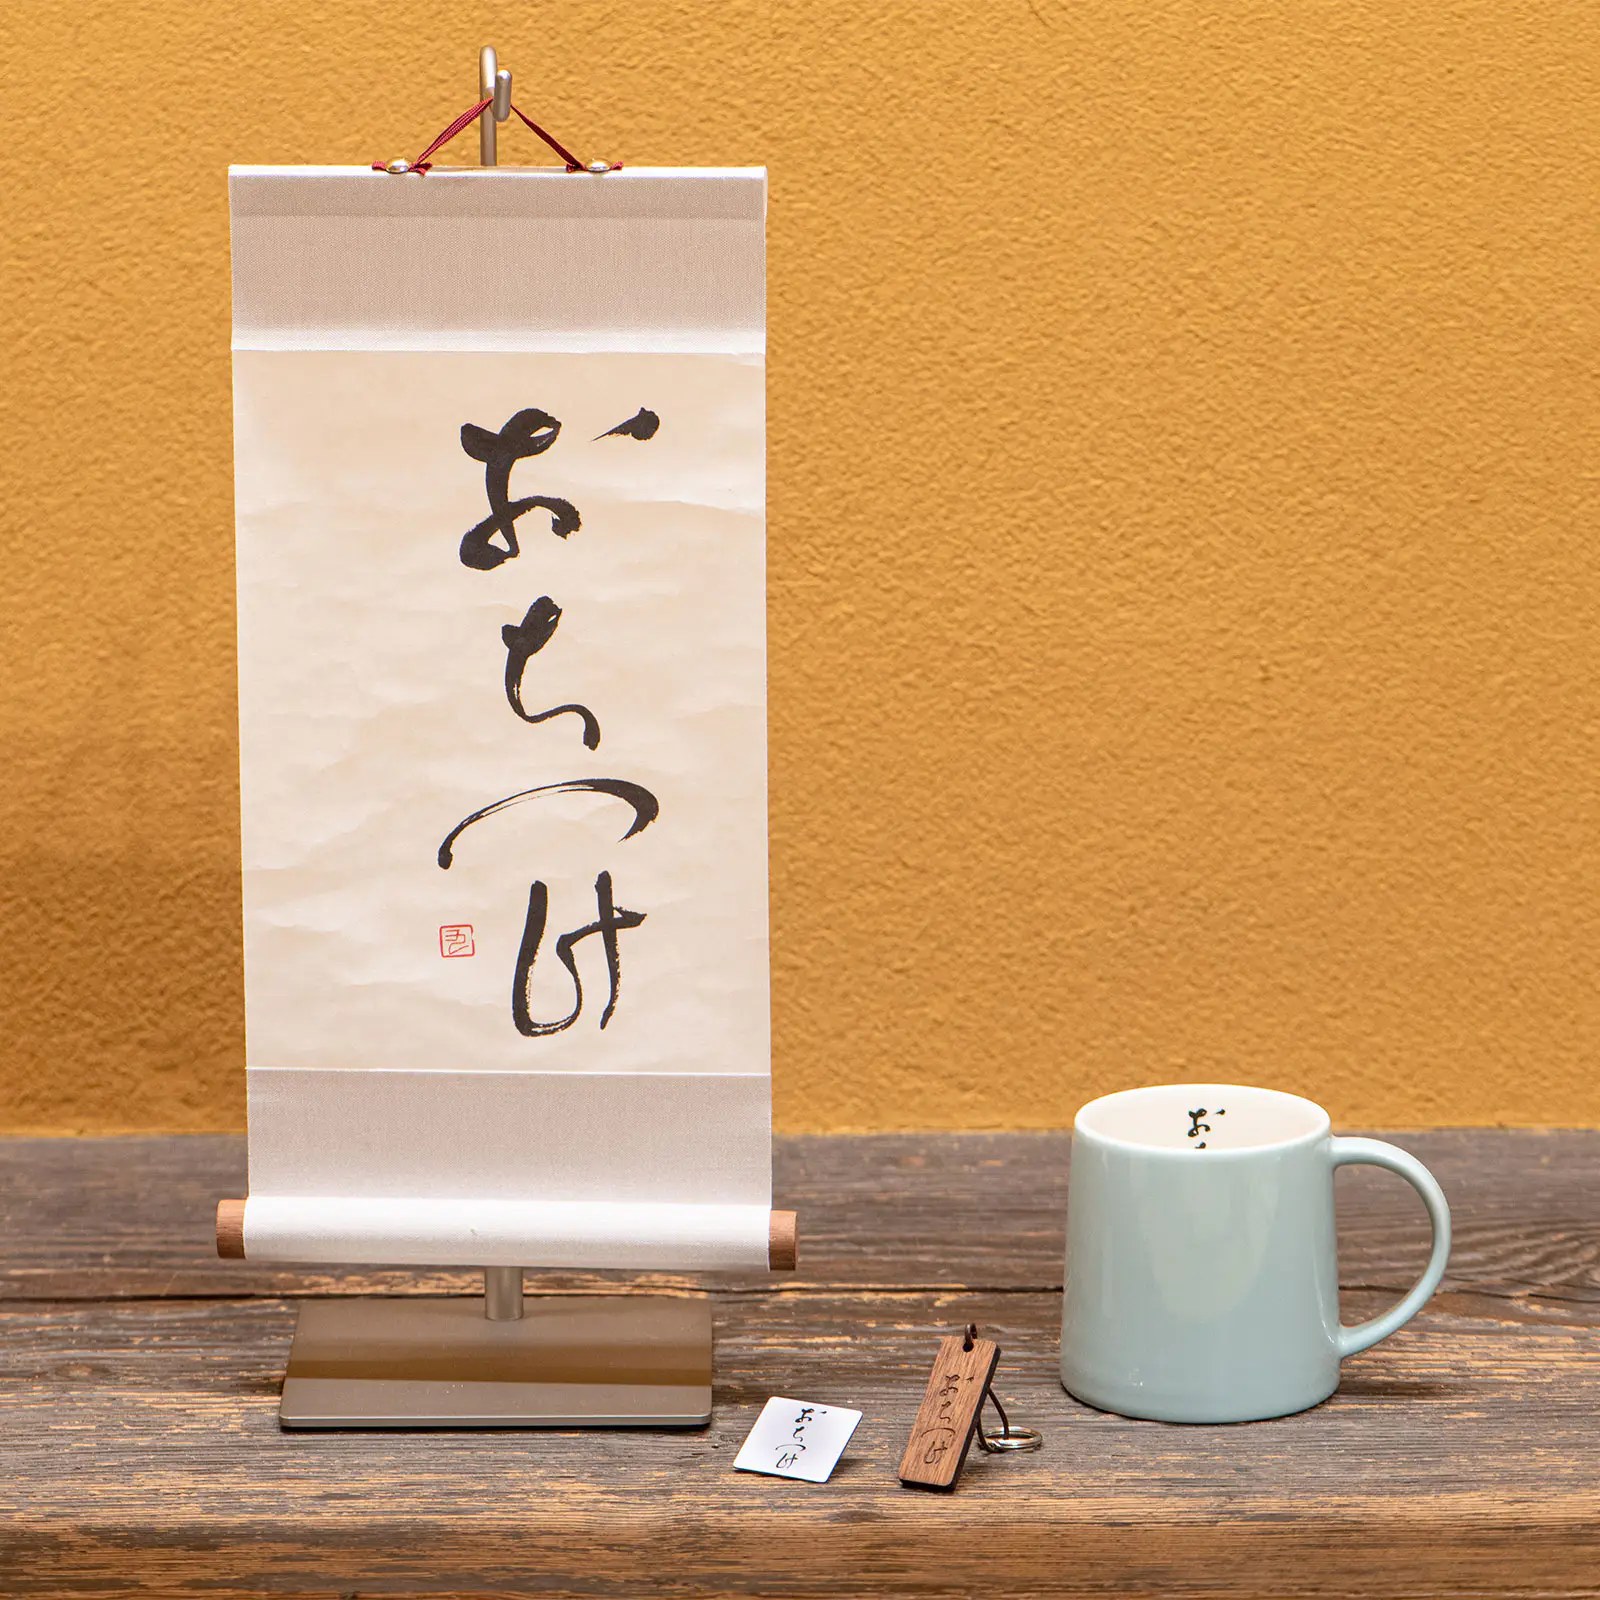 おちつけ
お
おちつけ
おちつけ